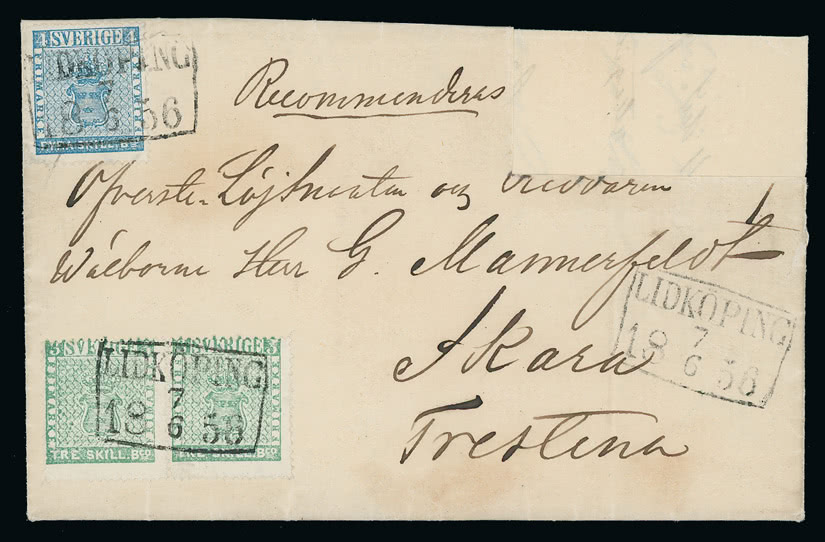 4 SVERIGE 4
FRIMARKE
FYRA SKILL. Bco
LIDKÖPING
18 6 56
Recommenderas
Öfverste-Löjtnanten och Riddaren
Wälborne Herr G. Mannerfeldt
Skara
Trestena
LIDKÖPING
7
18 6 56
3 SVERIGE 3
TRE SKILL. Bco
3 SVERIGE 3
TRE SKILL. Bco
LIDKÖPING
7
18 6 56